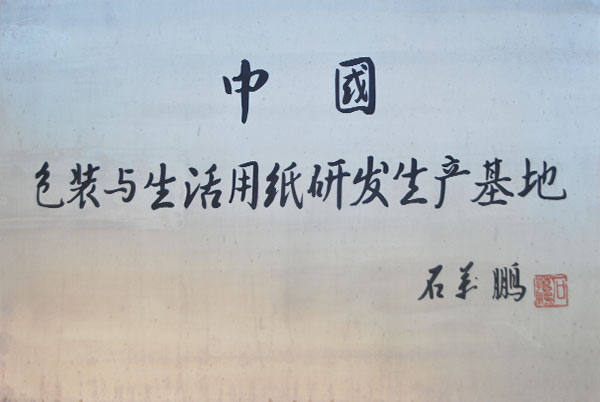 中國
包装与生活用纸研发生产基地
石萬鹏